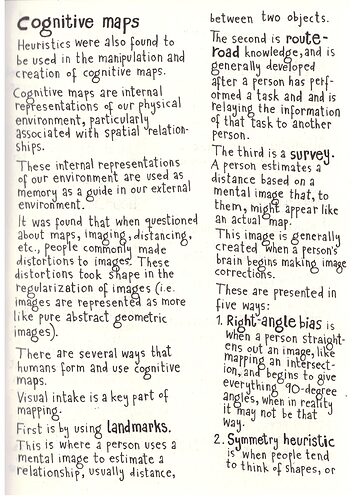 Cognitive maps
Heuristics were also found to
be used in the manipulation and
creation of cognitive maps.
Cognitive maps are internal
representations of our physical
environment, particularly
associated with spatial relation-
ships.
These internal representations
of our environment are used as
memory as a guide in our external
environment.
It was found that when questioned
about maps, imaging, distancing,
etc., people commonly made
distortions to images. These
distortions took shape in the
regularization of images (i.e.
images are represented as more
like pure abstract geometric
images).
There are several ways that
humans form and use cognitive
maps.
Visual intake is a key part of
mapping.
First is by using landmarks.
This is where a person uses a
mental image to estimate a
relationship, usually distance,
between two objects.
The second is route-
road knowledge, and is
generally developed
after a person has perf-
ormed a task and and is
relaying the information
of that task to another
person.
The third is a survey.
A person estimates a
distance based on a
mental image that, to
them, might appear like
an actual map.
This image is generally
created when a person's
brain begins making image
corrections.
These are presented in
five ways:
1. Right-angle bias is
when a person straight-
ens out an image, like
mapping an intersect-
ion, and begins to give
everything 90-degree
angles, when in reality
it may not be that
way.
2. Symmetry heuristic
is when people tend
to think of shapes, or